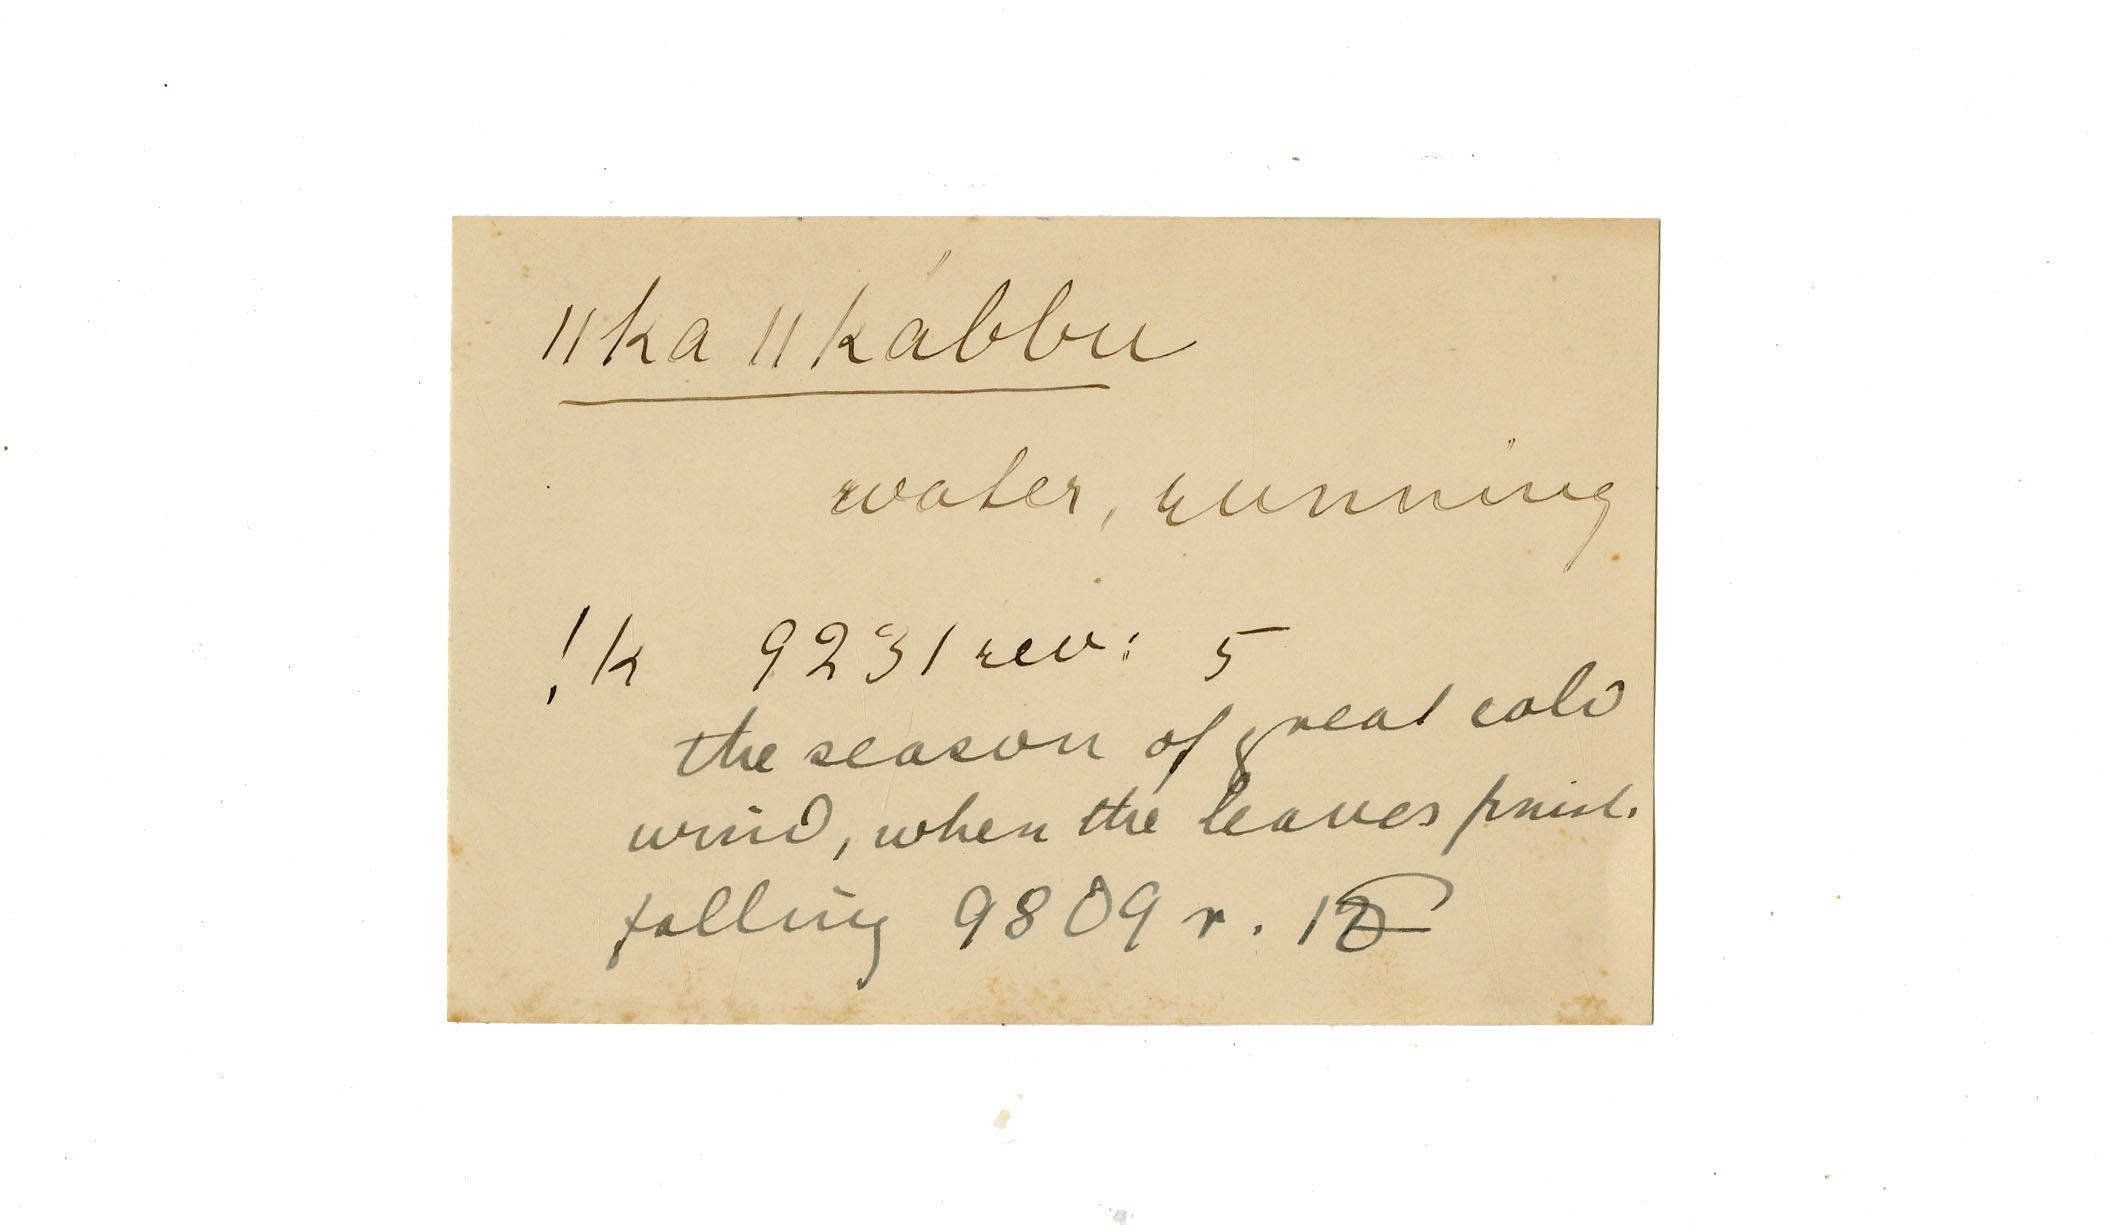 ǁka ǁkábbu
water, running
!k 9231 rev: 5
the season of great cold
wind, when the leaves finish
falling 9809 r.